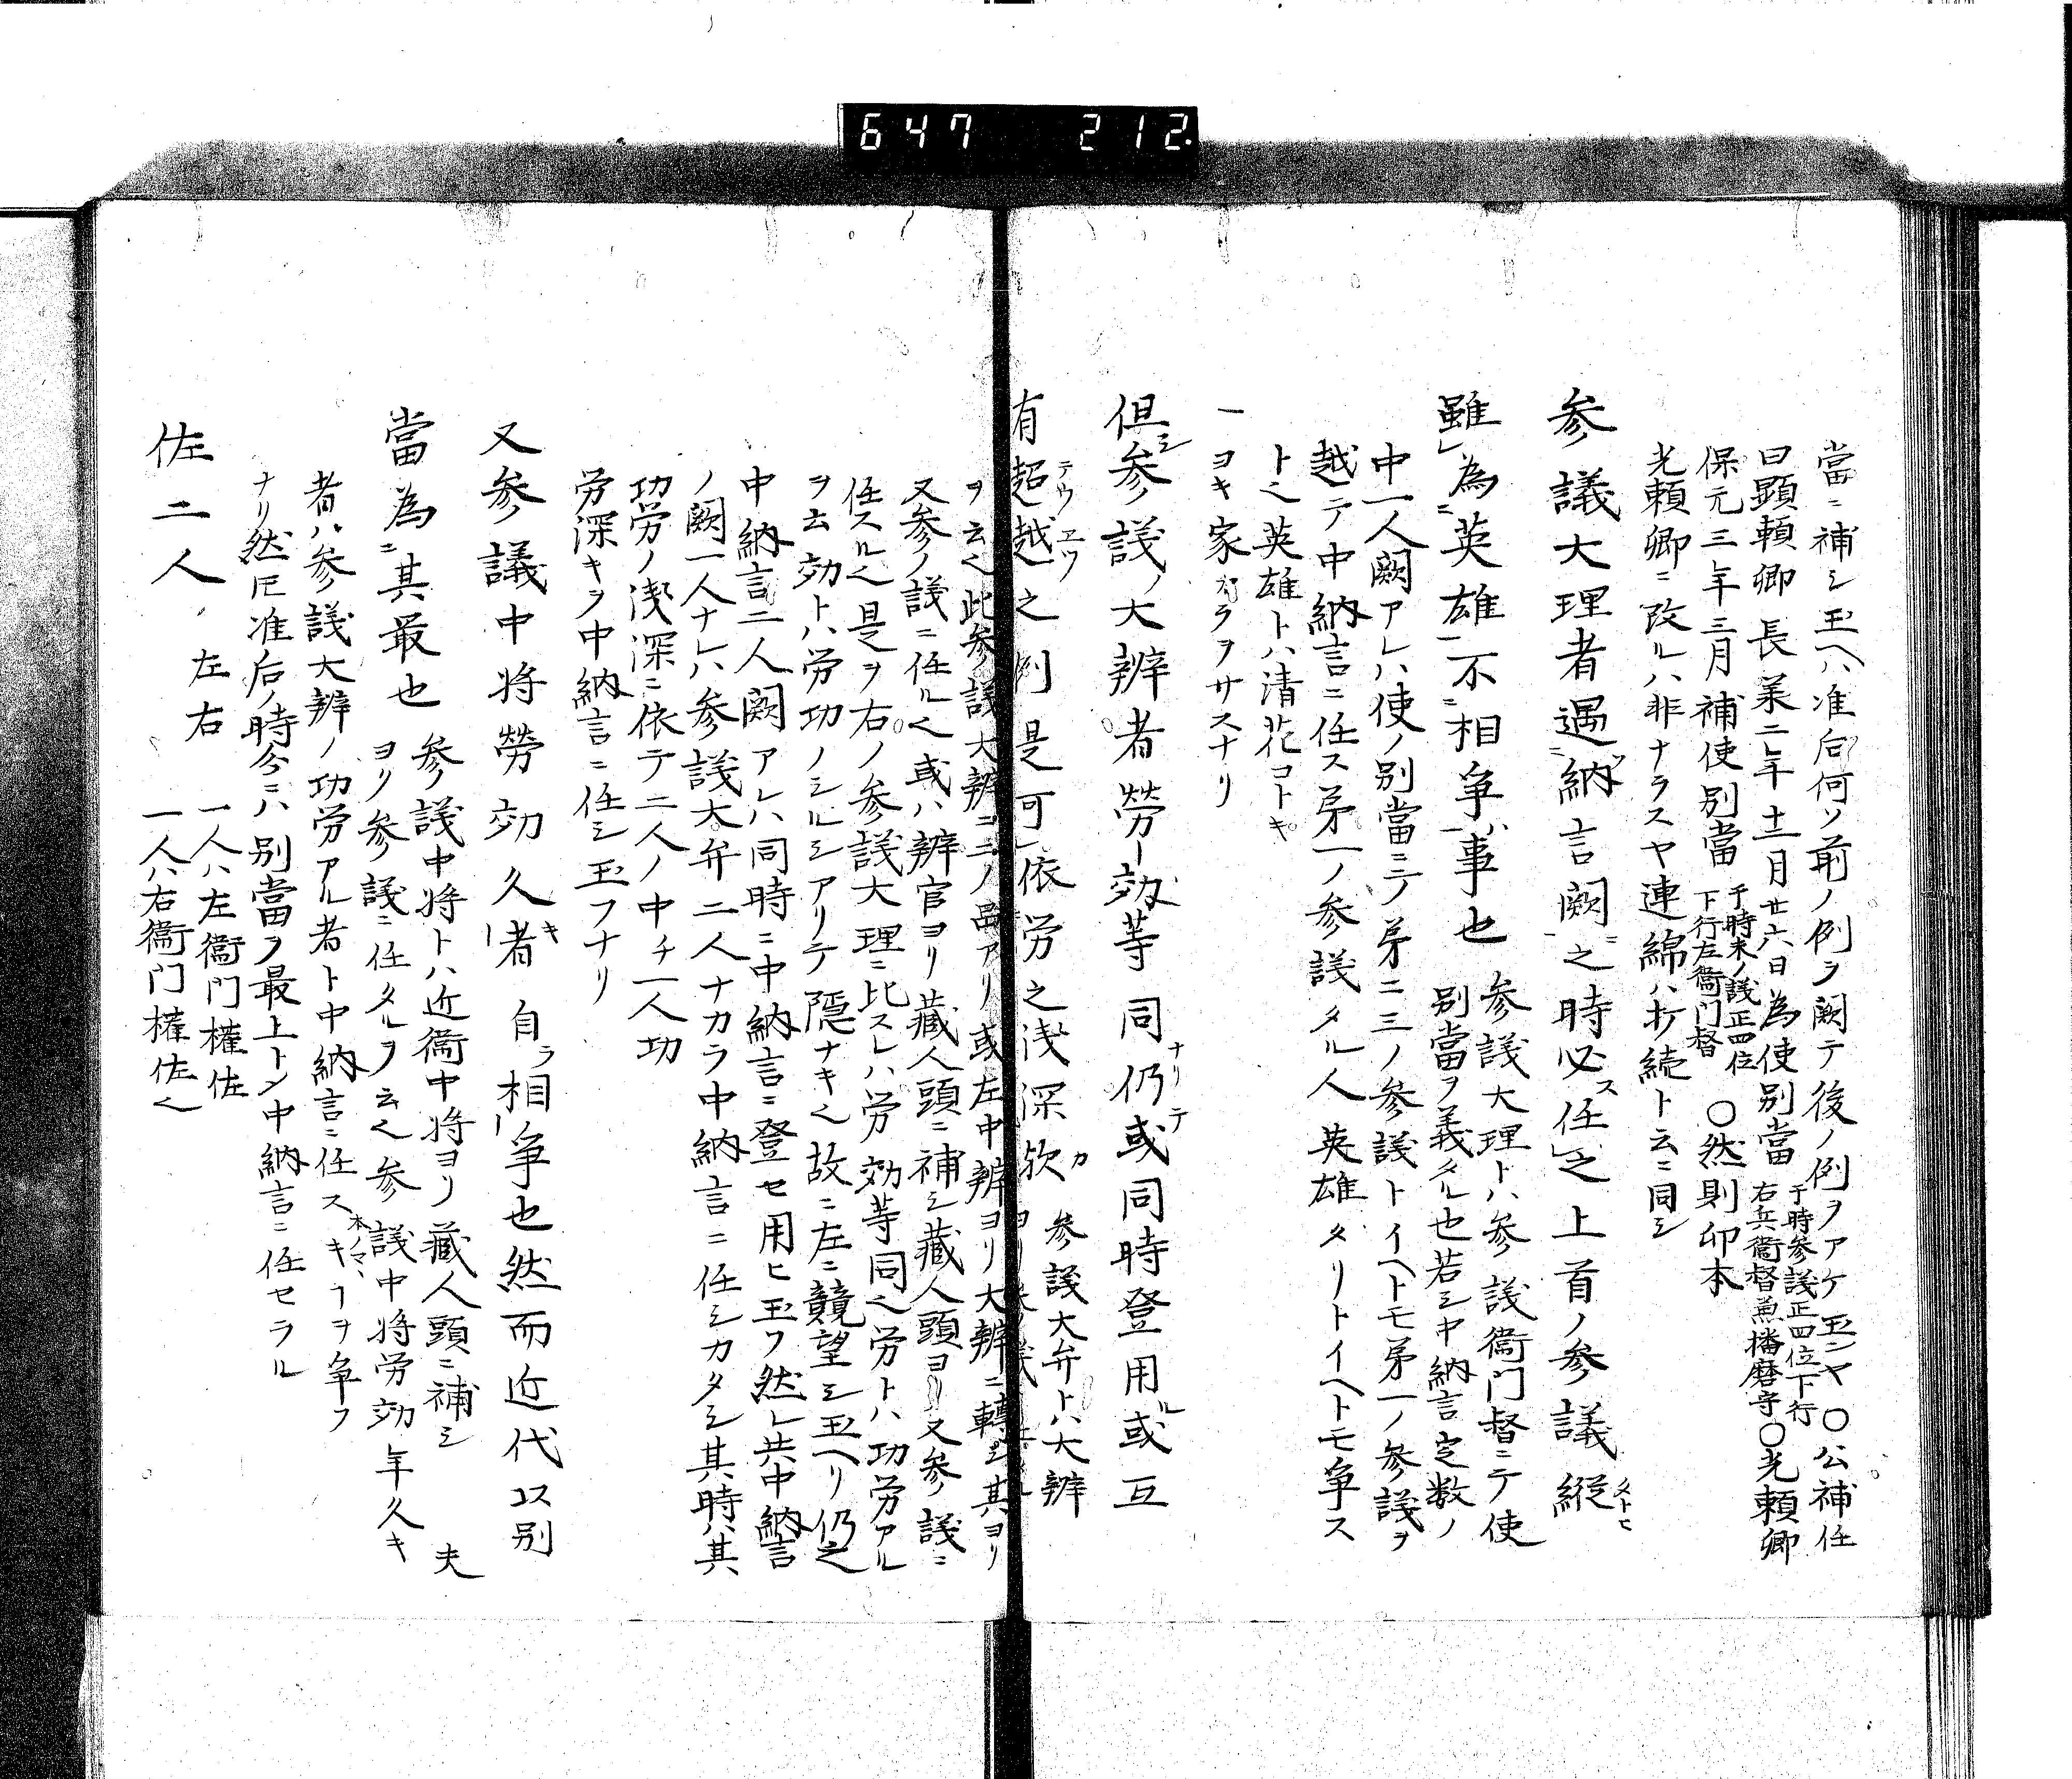 647 212.
當ニ補シ玉ヘハ准后何ソ前ノ例ヲ闕テ後ノ例ヲアケ玉ンヤ〇公補任
曰顕頼卿長業二年十二月廿六日為使別當于時参議正四位下行右兵衞督兼播磨守〇光頼卿
保元三年三月補使別當于時末ノ議正四位下行左衞門督〇然則印本
光頼卿ニ改ルハ非ナラスヤ連綿ハ打続ト云ニ同シ
参議大理者遇納言闕之時必任之上首ノ参議縦
雖為英雄不相争事也参議大理トハ参議衞門督ニテ使
別當ヲ義タル也若シ中納言定数ノ
中一人闕アレハ使ノ別當ニテ第二三ノ参議トイヘトモ第一ノ参議ヲ
越テ中納言ニ任ス第一ノ参議タル人英雄タリトイヘトモ争ス
ト也英雄トハ清花コトキ
一ヨキ家カラヲサスナリ
但シ参議ノ大辨者勞效等同ナリ仍テ或同時登用ル或互
有超越テウヱツ之例是可依労之浅深歟カ参議大弁トハ大辨
ヲ云也此参議大辨ニ二ノ品アリ或左中辨ヨリ大辨ニ轉シ其ヨリ
又参ノ議ニ任ル也或ハ辨官ヨリ藏人頭ニ補シ藏人頭ヨリ又参ノ議ニ
任スル也是ヲ右ノ参議大理ニ比スレハ労効等同也労トハ功労アル
ヲ云効トハ労功ノシルシアリテ隠ナキ也故ニ左ニ競望シ玉ヘリ仍之
中納言二人闕アレハ同時ニ中納言ニ登セ用ヒ玉フ然レ共中納言
ノ闕一人ナレハ参議大弁二人ナカラ中納言ニ任シカタシ其時ハ其
功労ノ浅深ニ依テ二人ノ中チ一人功
労深キヲ中納言ニ任シ玉フナリ
又参議中将勞効久キ者自ラ相争也然而近代以別
當為其最也参議中将トハ近衞中将ヨリ藏人頭ニ補シ夫
ヨリ参議ニ任タルヲ云也参議中将労効年久キ
者ハ参議大辨ノ功労アル者ト中納言ニ任スキヲ本ノマヽ争フ
ナリ然トモ准后ノ時今ニハ別當ヲ最上トシ中納言ニ任セラル
佐二人左右一人ハ左衞門權佐
一人ハ右衞門權佐也